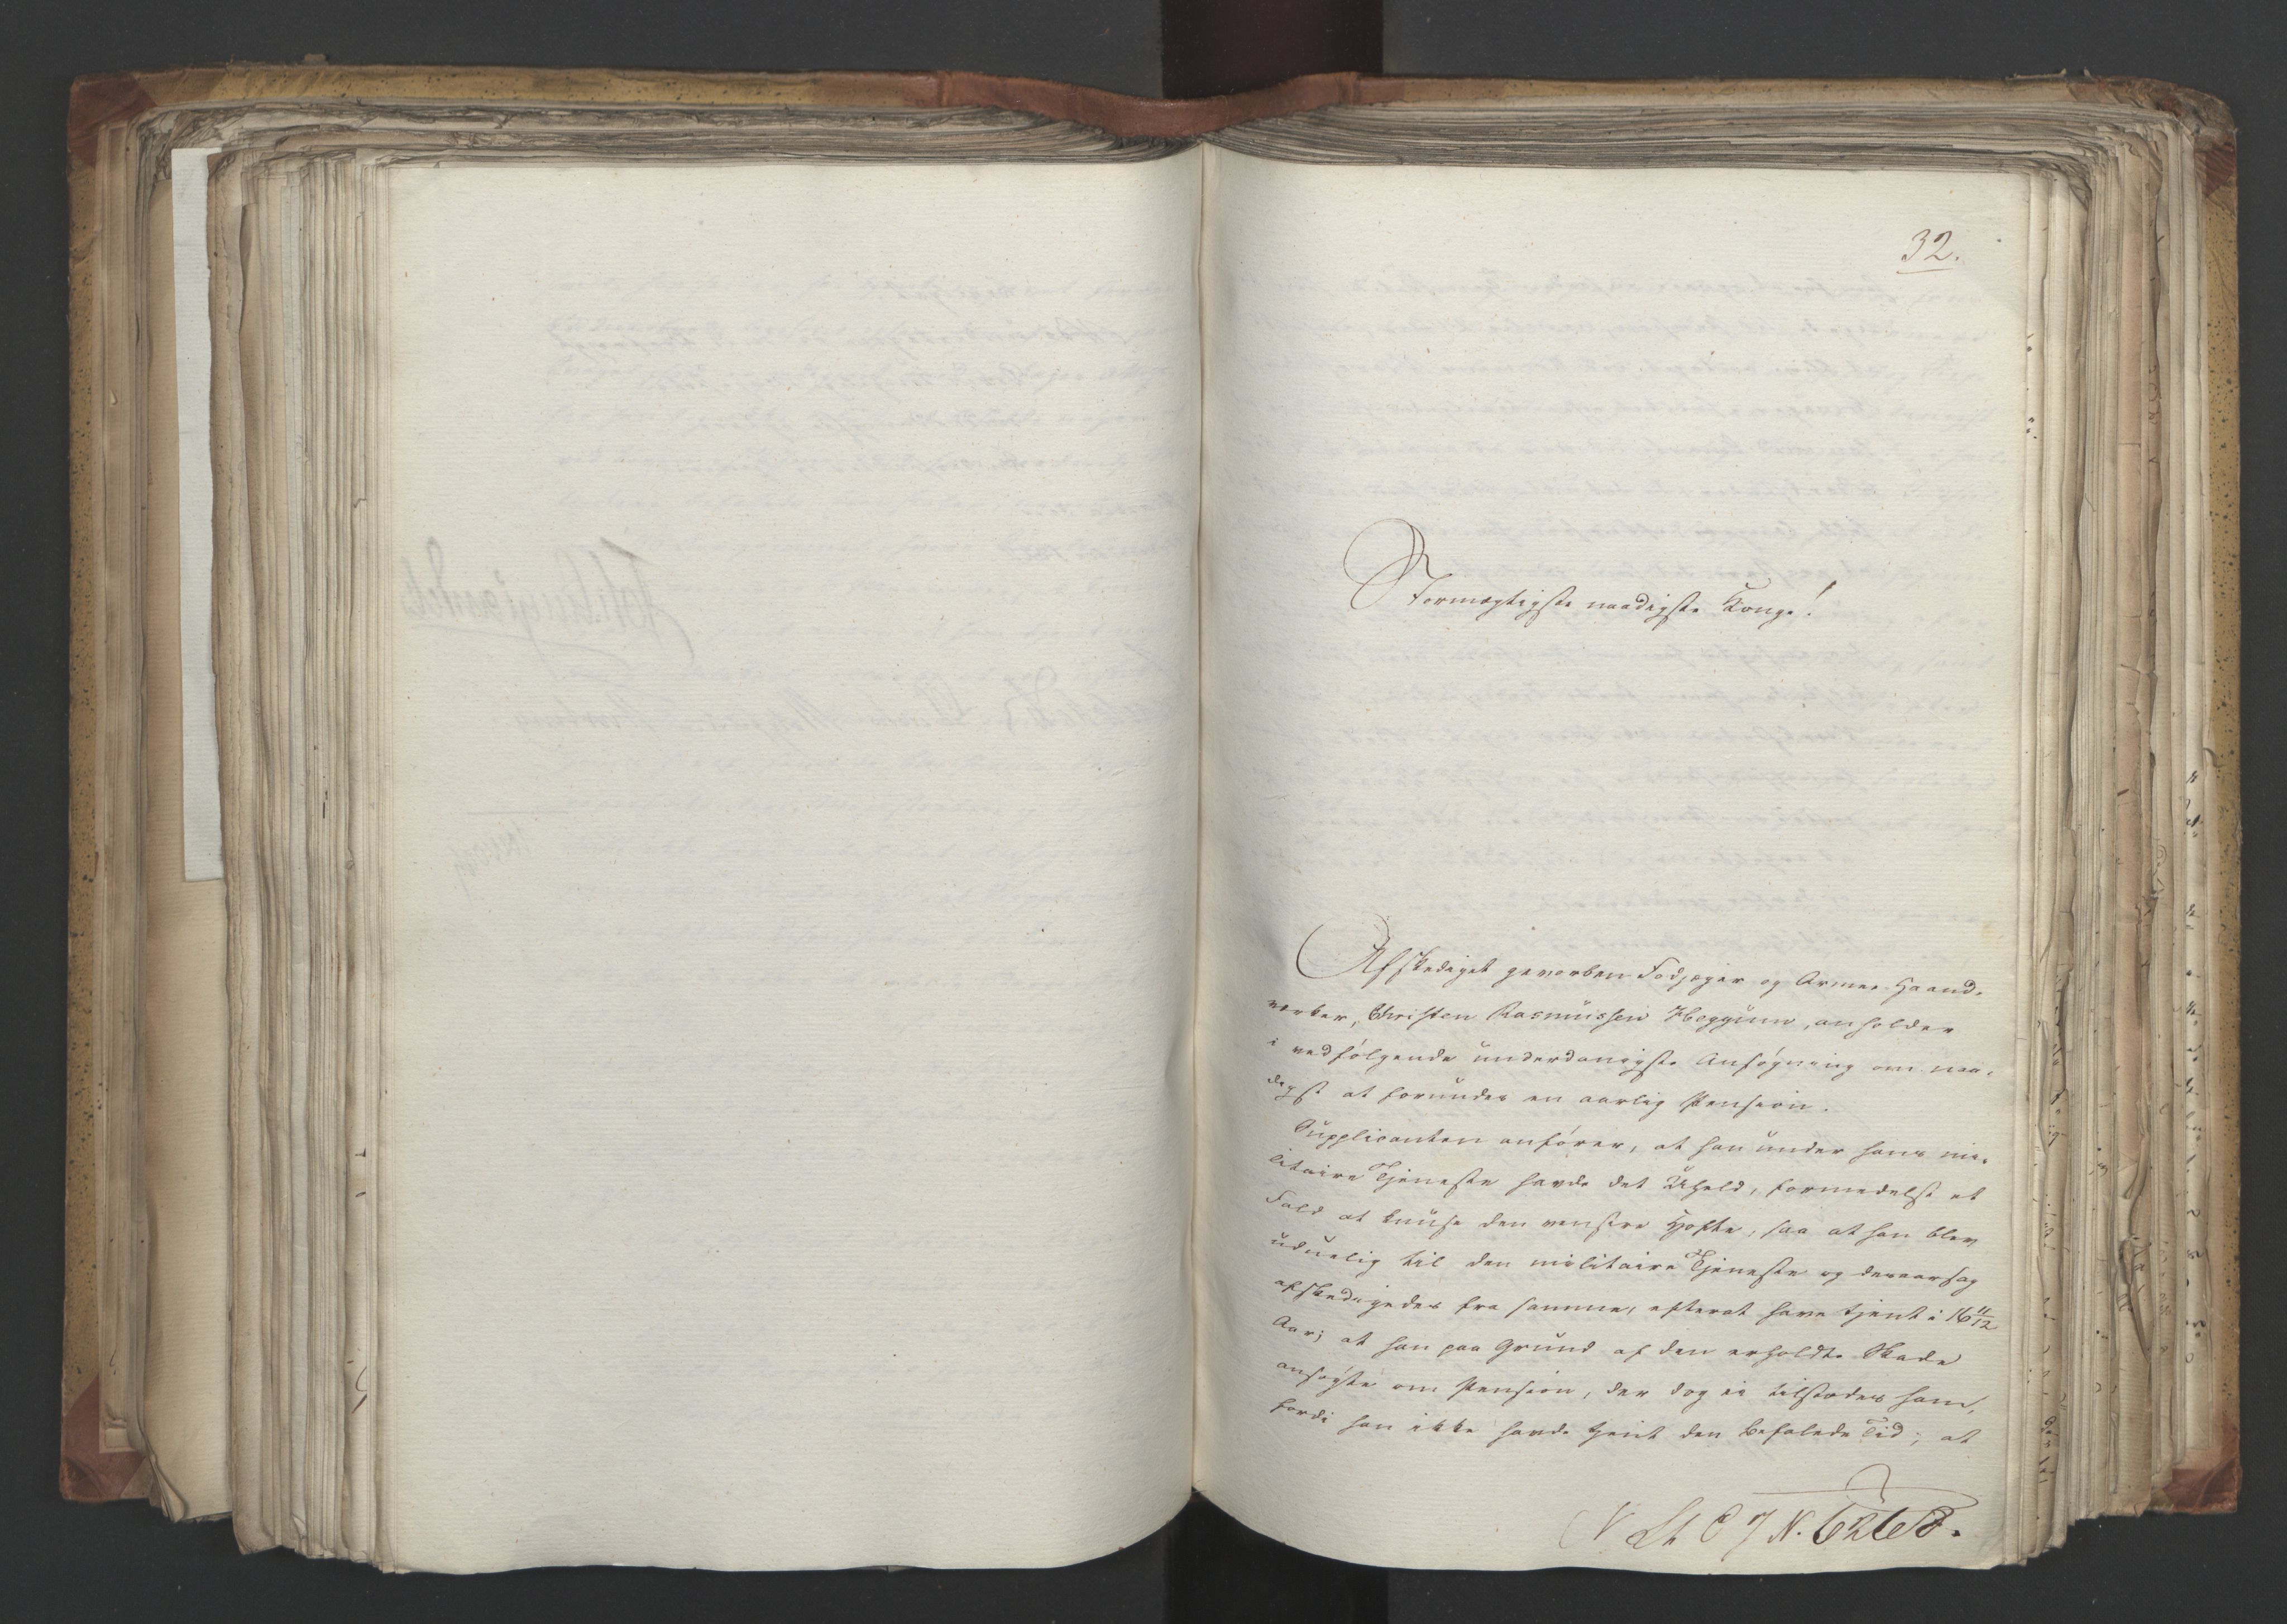 32.
Stormægtigste naadigste Konge!
Afskediget gevorben Fodjæger og Armee Haand-
værker, Christen Rasmussen Heggum, anholder
i vedfølgende underdanigste Ansøgning om naa-
digst at forundes en aarlig Pension.
Supplicanten anfører, at han under hans mi-
litaire Tjeneste havde det Uheld, formedelst et
Fald at knuse den venstre Hofte, saa at han blev
uduelig til den militaire Tjeneste og deraarsag
afskedigedes fra samme, efterat have tjent i 16 11/12
Aar; at han paa Grund af den erholdte Skade
ansøgte om Pension, der dog ei tilstodes ham,
fordi han ikke havde tjent den befalede Tid; at